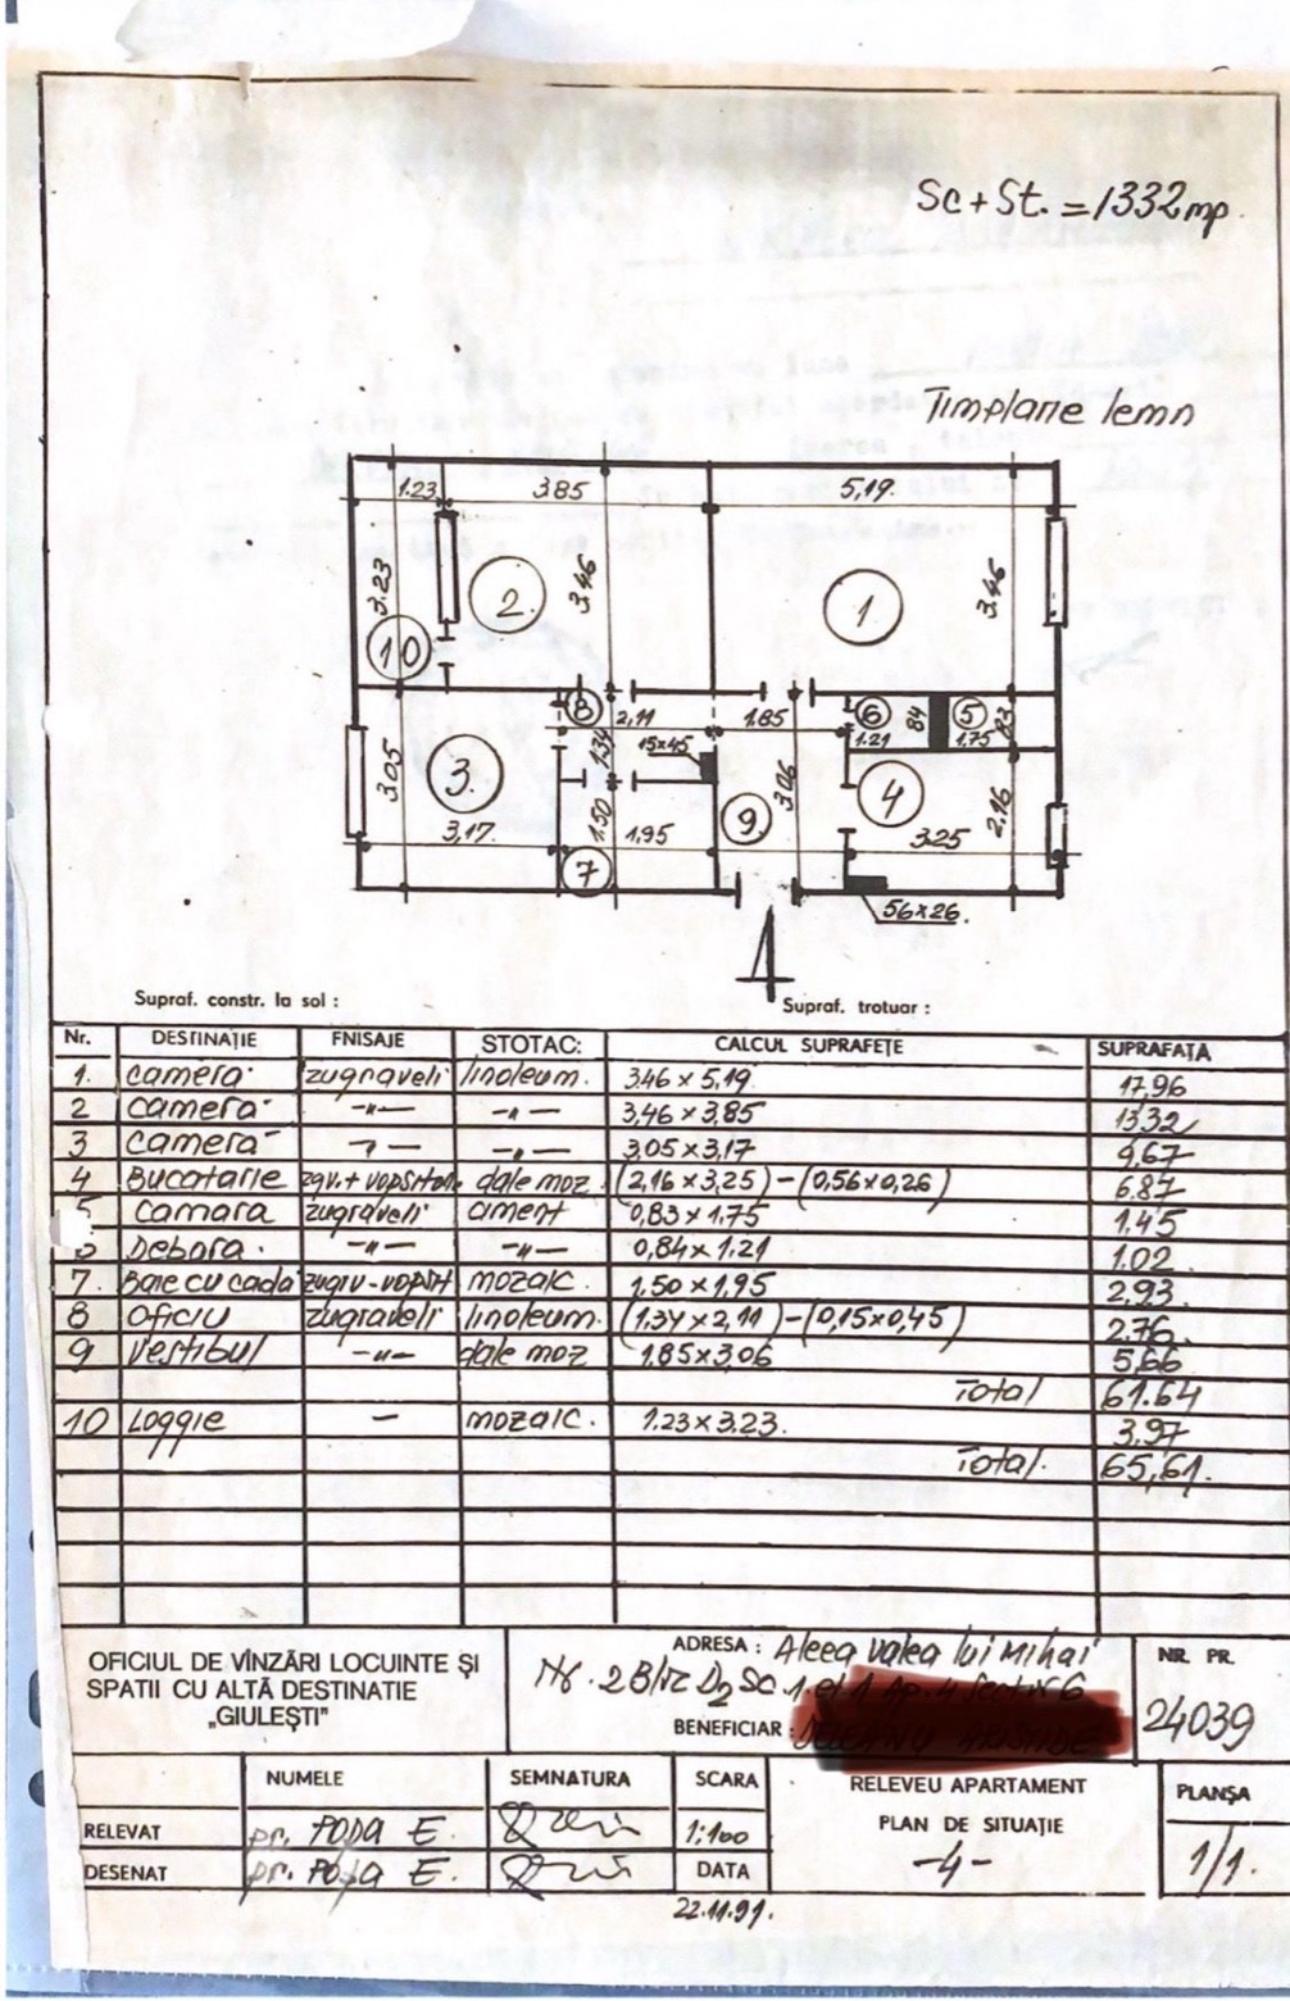 Sc + St. = 1332 mp.
Timplarie lemn
1.23 3.85 5,19.
3.23 3.46 3.46
2. 1
10
8 2,11 1.85 6 1.21 84 5 1.75 83
1.34 15x45
3. 3.05 3.06 4 2.16
9.
3,17. 1.50 1,95 3.25
7
56x26.
Supraf. constr. la sol :
Supraf. trotuar :
Nr. DESTINAȚIE FNISAJE STOTAC: CALCUL SUPRAFEȚE SUPRAFAȚA
1. camera zugraveli linoleum. 3.46 x 5,19 17,96
2 camera -"- -"- 3,46 x 3,85 13,32
3 camera -"- -"- 3,05 x 3,17 9,67
4 Bucatarie dale moz. (2,16 x 3,25) - (0,56 x 0,26) 6.87
5 camara zugraveli ciment 0,83 x 1.75 1.45
Debara. -"- -"- 0,84 x 1.21 1.02
7. Baie cu cada mozaic. 1.50 x 1,95 2,93
8 oficiu zugraveli linoleum. (1.34 x 2,11) - (0,15 x 0,45) 2,76.
9 vestibul -"- dale moz 1.85 x 3,06 5,66
Total 61.64
10 Loggie - mozaic. 1.23 x 3.23. 3,97
Total. 65,61.
OFICIUL DE VÎNZĂRI LOCUINTE ȘI
SPATII CU ALTĂ DESTINATIE
„GIULEȘTI”
ADRESA : Aleea Valea lui Mihai
Nr. 2 Bloc D2 Sc. 1. et 1 Ap. 4 Sector 6
BENEFICIAR :
NR. PR.
24039
NUMELE SEMNATURA SCARA
RELEVAT pr. POPA E. 1:100
DESENAT pr. POPA E. DATA
22.11.91.
RELEVEU APARTAMENT
PLAN DE SITUAȚIE
-4-
PLANȘA
1/1.